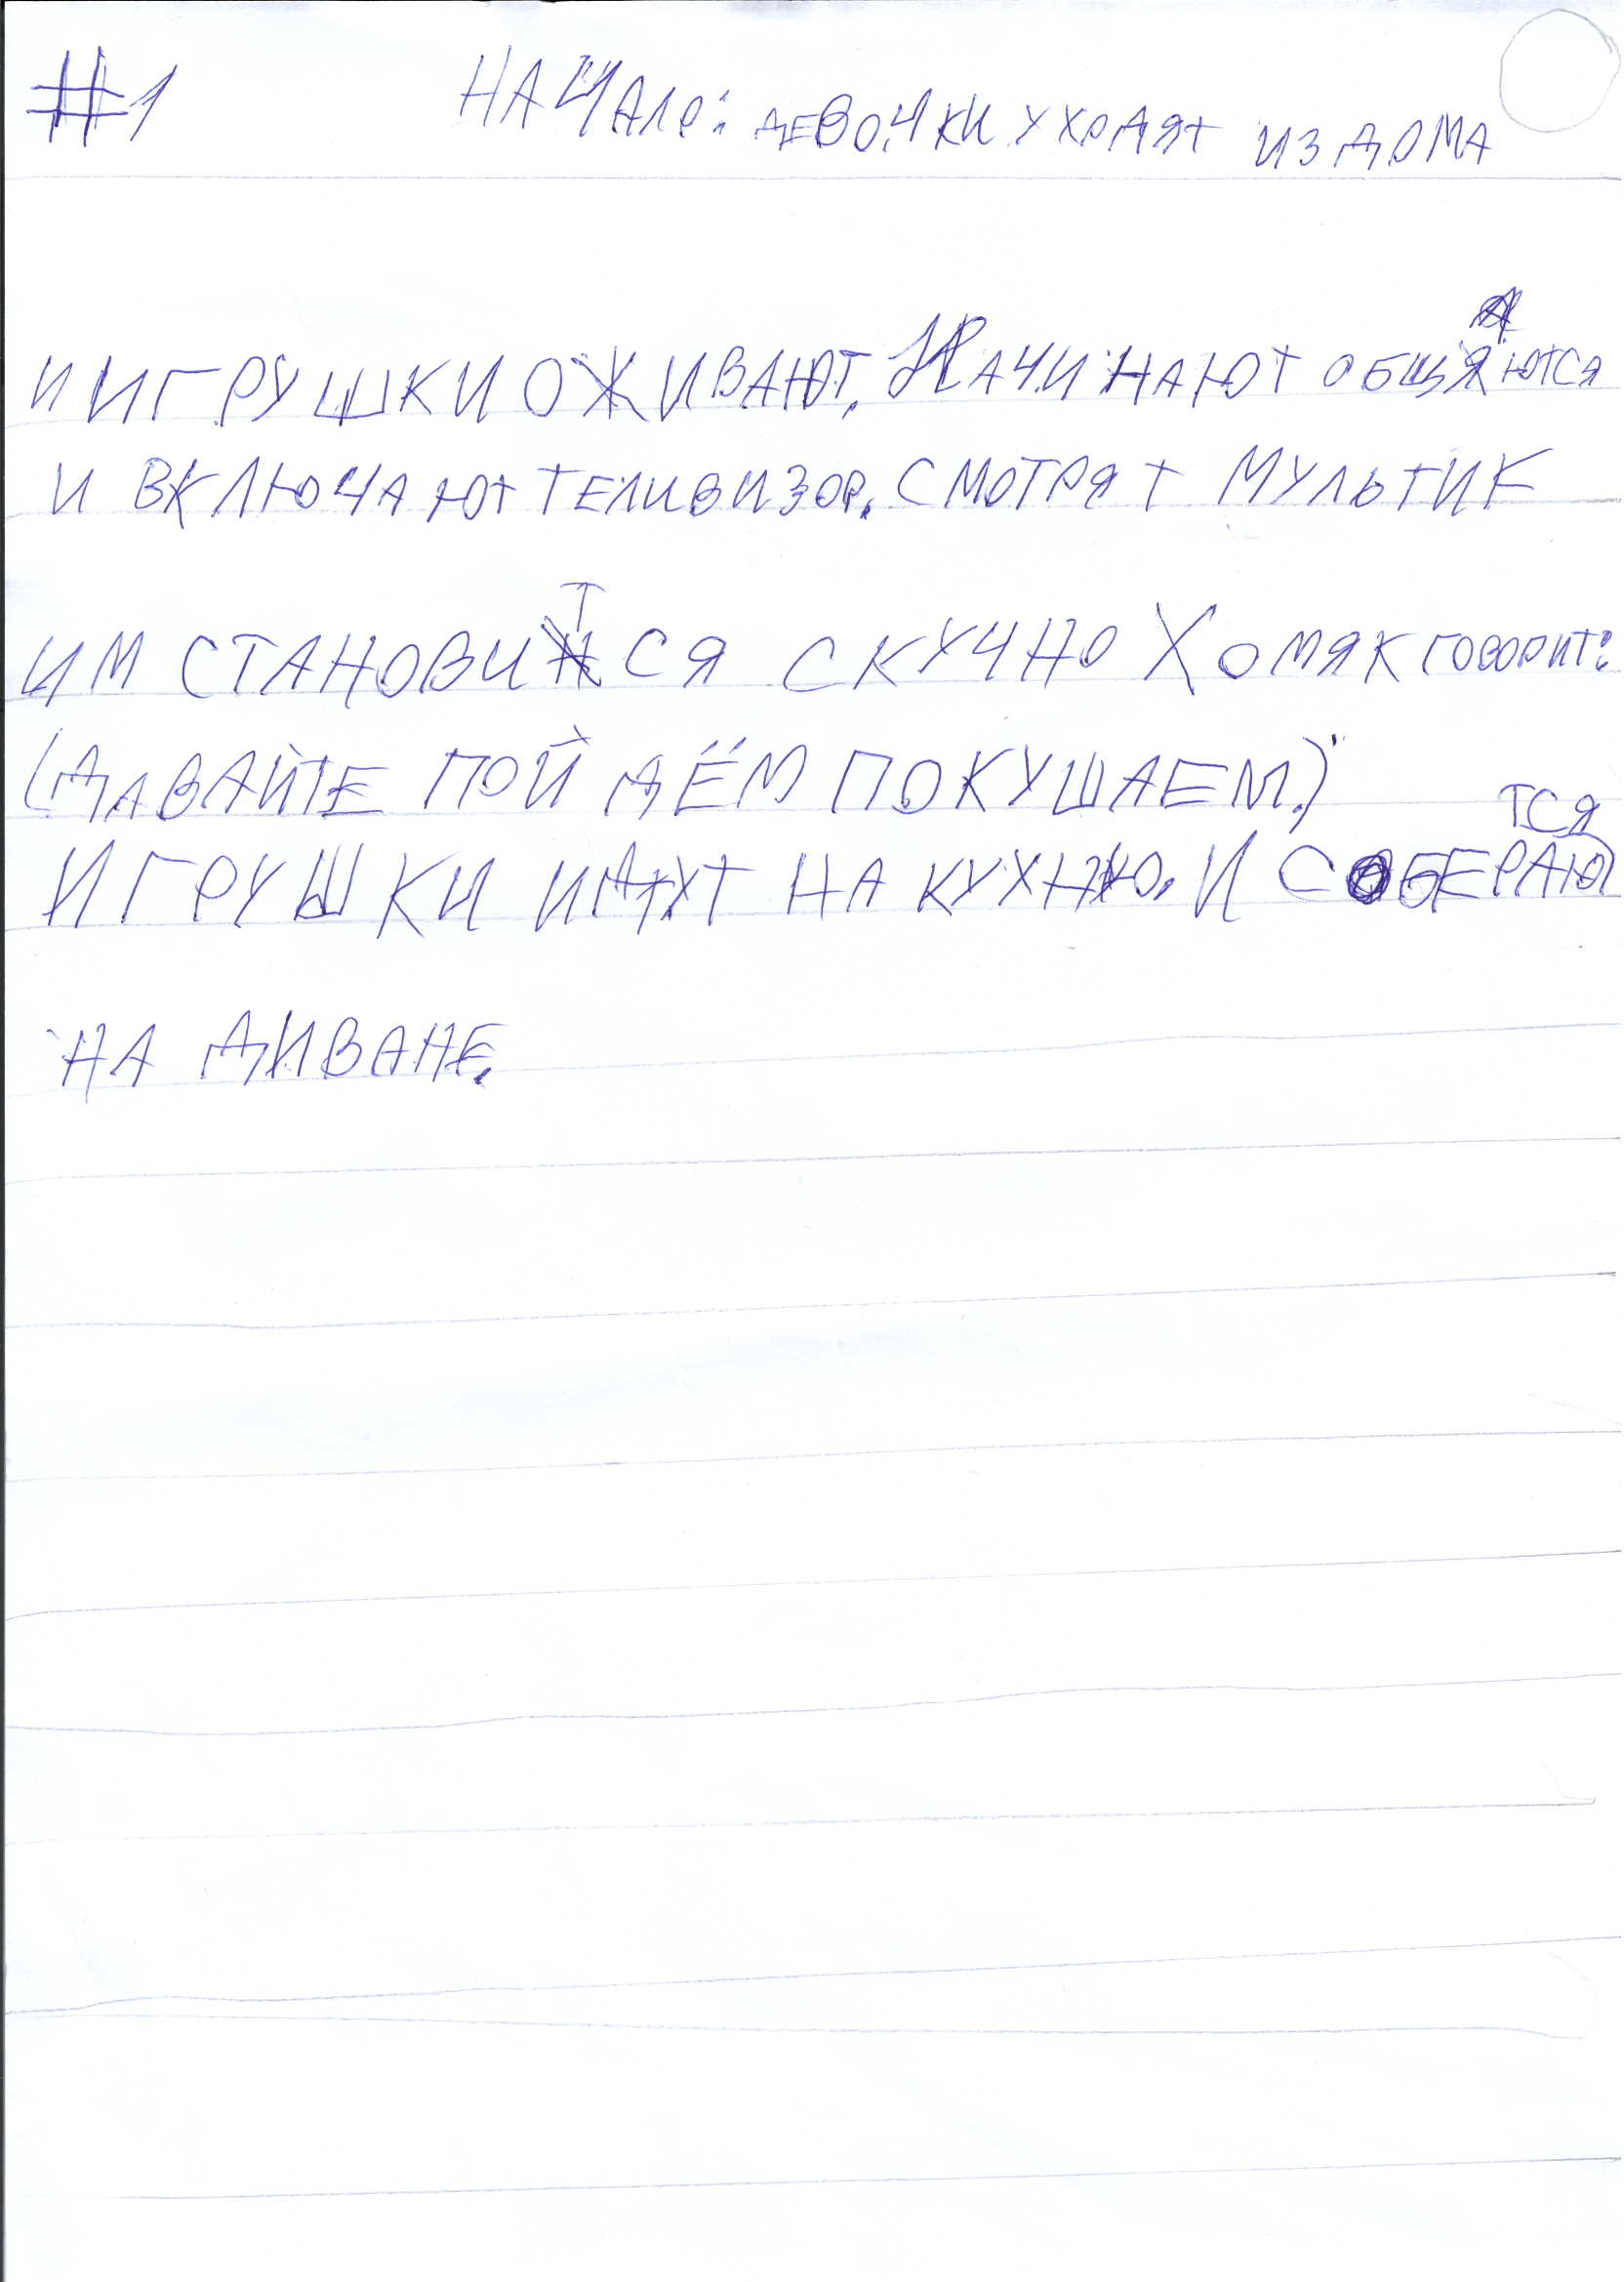 #1 НАЧАЛО: ДЕВОЧКИ УХОДЯТ ИЗ ДОМА
И ИГРУШКИ ОЖИВАЮТ. НАЧИНАЮТ ОБЩАЮТСЯ
И ВКЛЮЧАЮТ ТЕЛИВИЗОР. СМОТРЯТ МУЛЬТИК
ИМ СТАНОВИТСЯ СКУЧНО ХОМЯК ГОВОРИТ:
(ДАВАЙТЕ ПОЙДЁМ ПОКУШАЕМ.)
ИГРУШКИ ИДУТ НА КУХНЮ. И СОБЕРАЮТСЯ
НА ДИВАНЕ.